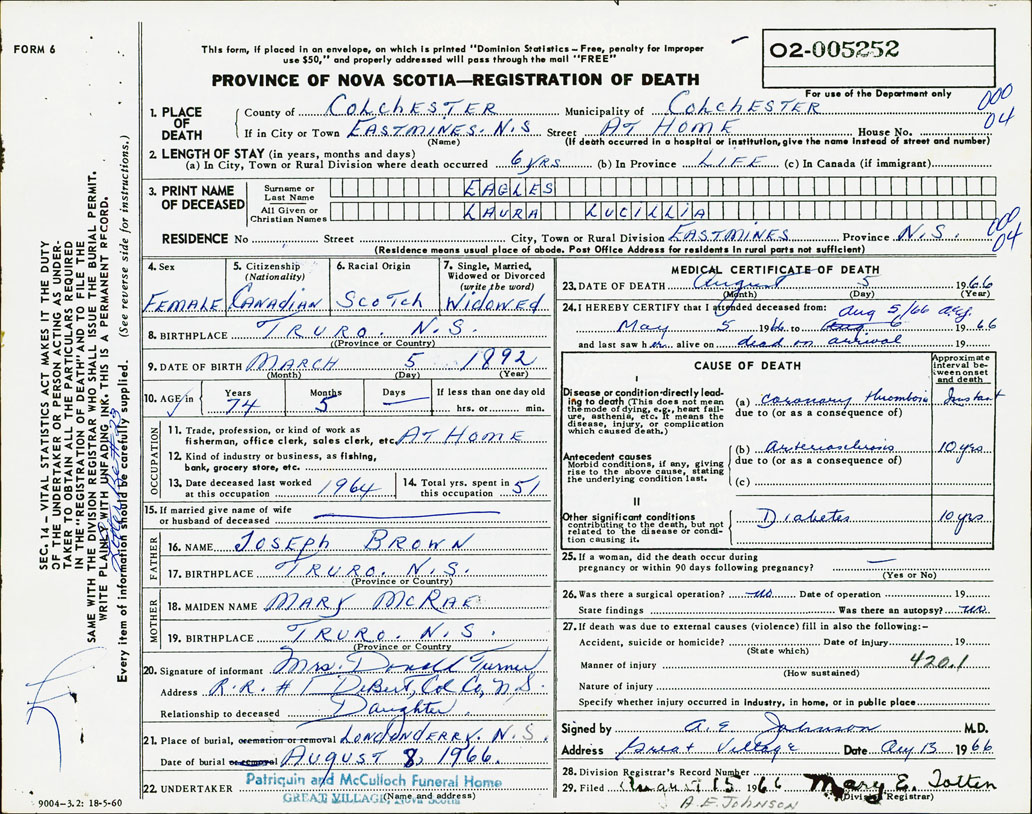 FORM 6
This form, if placed in an envelope, on which is printed "Dominion Statistics – Free, penalty for improper
use $50," and properly addressed will pass through the mail "FREE"
PROVINCE OF NOVA SCOTIA—REGISTRATION OF DEATH
O2-005252
For use of the Department only
000
04
1. PLACE OF DEATH
County of COLCHESTER Municipality of COLCHESTER
If in City or Town EASTMINES. N.S Street AT HOME House No.
(Name) (If death occurred in a hospital or institution, give the name instead of street and number)
2. LENGTH OF STAY (in years, months and days)
(a) In City, Town or Rural Division where death occurred 6 YRS (b) In Province LIFE (c) In Canada (if immigrant)
3. PRINT NAME OF DECEASED
Surname or Last Name EAGLES
All Given or Christian Names LAURA LUCILLIA
RESIDENCE No Street City, Town or Rural Division EASTMINES Province N.S.
000
04
(Residence means usual place of abode. Post Office Address for residents in rural parts not sufficient)
4. Sex
FEMALE
5. Citizenship
(Nationality)
CANADIAN
6. Racial Origin
SCOTCH
7. Single, Married,
Widowed or Divorced
(write the word)
WIDOWED
8. BIRTHPLACE TRURO. N.S.
(Province or Country)
9. DATE OF BIRTH MARCH 5 1892
(Month) (Day) (Year)
10. AGE in
Years
74
Months
5
Days
—
If less than one day old
hrs. or min.
OCCUPATION
11. Trade, profession, or kind of work as
fisherman, office clerk, sales clerk, etc. AT HOME
12. Kind of industry or business, as fishing,
bank, grocery store, etc.
13. Date deceased last worked
at this occupation 1964
14. Total yrs. spent in
this occupation 51
15. If married give name of wife
or husband of deceased
FATHER
16. NAME JOSEPH BROWN
17. BIRTHPLACE TRURO. N.S.
(Province or Country)
MOTHER
18. MAIDEN NAME MARY MCRAE
19. BIRTHPLACE TRURO. N.S.
(Province or Country)
20. Signature of informant Mrs. Donald Turner
Address R.R. #1 DEBERT, Col Co, N.S.
Relationship to deceased Daughter
21. Place of burial, cremation or removal LONDONDERRY. N.S.
Date of burial or removal AUGUST 8, 1966.
22. UNDERTAKER Patriquin and McCulloch Funeral Home
GREAT VILLAGE, Nova Scotia
(Name and address)
MEDICAL CERTIFICATE OF DEATH
23. DATE OF DEATH August 5 1966
(Month) (Day) (Year)
24. I HEREBY CERTIFY that I attended deceased from: Aug 5/66
May 5 1966 to Aug 6 1966
and last saw her alive on dead on arrival 19
CAUSE OF DEATH
Approximate
interval between onset
and death
I
Disease or condition directly leading to death (This does not mean
the mode of dying, e.g., heart failure, asthenia, etc. It means the
disease, injury, or complication
which caused death.)
(a) coronary thrombosis Instant
due to (or as a consequence of)
Antecedent causes
Morbid conditions, if any, giving
rise to the above cause, stating
the underlying condition last.
(b) arteriosclerosis 10 yrs
due to (or as a consequence of)
(c)
II
Other significant conditions
contributing to the death, but not
related to the disease or condition causing it.
Diabetes 10 yrs
25. If a woman, did the death occur during
pregnancy or within 90 days following pregnancy? —
(Yes or No)
26. Was there a surgical operation? no Date of operation 19
State findings Was there an autopsy? no
27. If death was due to external causes (violence) fill in also the following:–
Accident, suicide or homicide? Date of injury 19
(State which)
420.1
Manner of injury
(How sustained)
Nature of injury
Specify whether injury occurred in industry, in home, or in public place
Signed by A. E. Johnson M.D.
Address Great Village Date Aug 13 1966
28. Division Registrar's Record Number
29. Filed August 15 1966 Mary E. Totten
(Division Registrar)
A.E. JOHNSON
SEC. 14 – VITAL STATISTICS ACT MAKES IT THE DUTY
OF THE UNDERTAKER OR PERSON ACTING AS UNDERTAKER TO OBTAIN ALL THE PARTICULARS REQUIRED
IN THE "REGISTRATION OF DEATH" AND TO FILE THE
SAME WITH THE DIVISION REGISTRAR WHO SHALL ISSUE THE BURIAL PERMIT.
WRITE PLAINLY WITH UNFADING INK. THIS IS A PERMANENT RECORD.
Every item of information should be carefully supplied. (See reverse side for instructions.)
9004–3.2: 18-5-60